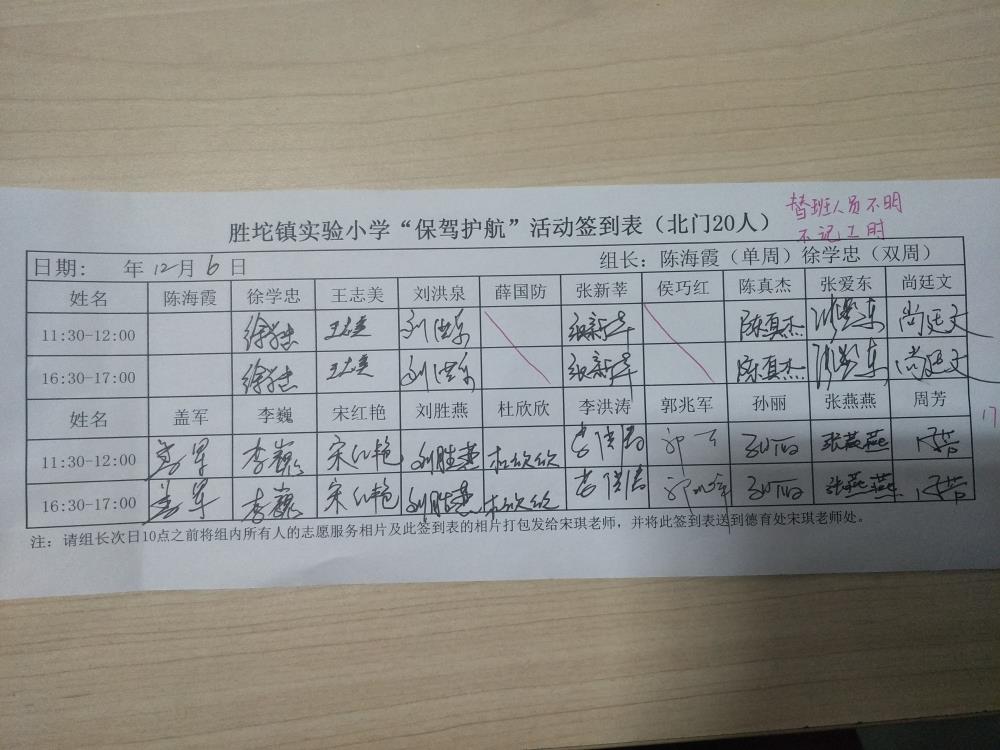 替班人员不明
不记工时
胜坨镇实验小学“保驾护航”活动签到表（北门20人）
日期： 年 12月 6 日 组长：陈海霞（单周）徐学忠（双周）
姓名 陈海霞 徐学忠 王志美 刘洪泉 薛国防 张新莘 侯巧红 陈真杰 张爱东 尚廷文
11:30-12:00 徐学忠 王志美 刘洪泉 张新莘 陈真杰 张爱东 尚廷文
16:30-17:00 徐学忠 王志美 刘洪泉 张新莘 陈真杰 张爱东 尚廷文
姓名 盖军 李巍 宋红艳 刘胜燕 杜欣欣 李洪涛 郭兆军 孙丽 张燕燕 周芳
17
11:30-12:00 盖军 李巍 宋红艳 刘胜燕 杜欣欣 李洪涛 孙丽 张燕燕 周芳
16:30-17:00 盖军 李巍 宋红艳 刘胜燕 杜欣欣 李洪涛 郭兆军 孙丽 张燕燕 周芳
注：请组长次日10点之前将组内所有人的志愿服务相片及此签到表的相片打包发给宋琪老师，并将此签到表送到德育处宋琪老师处。